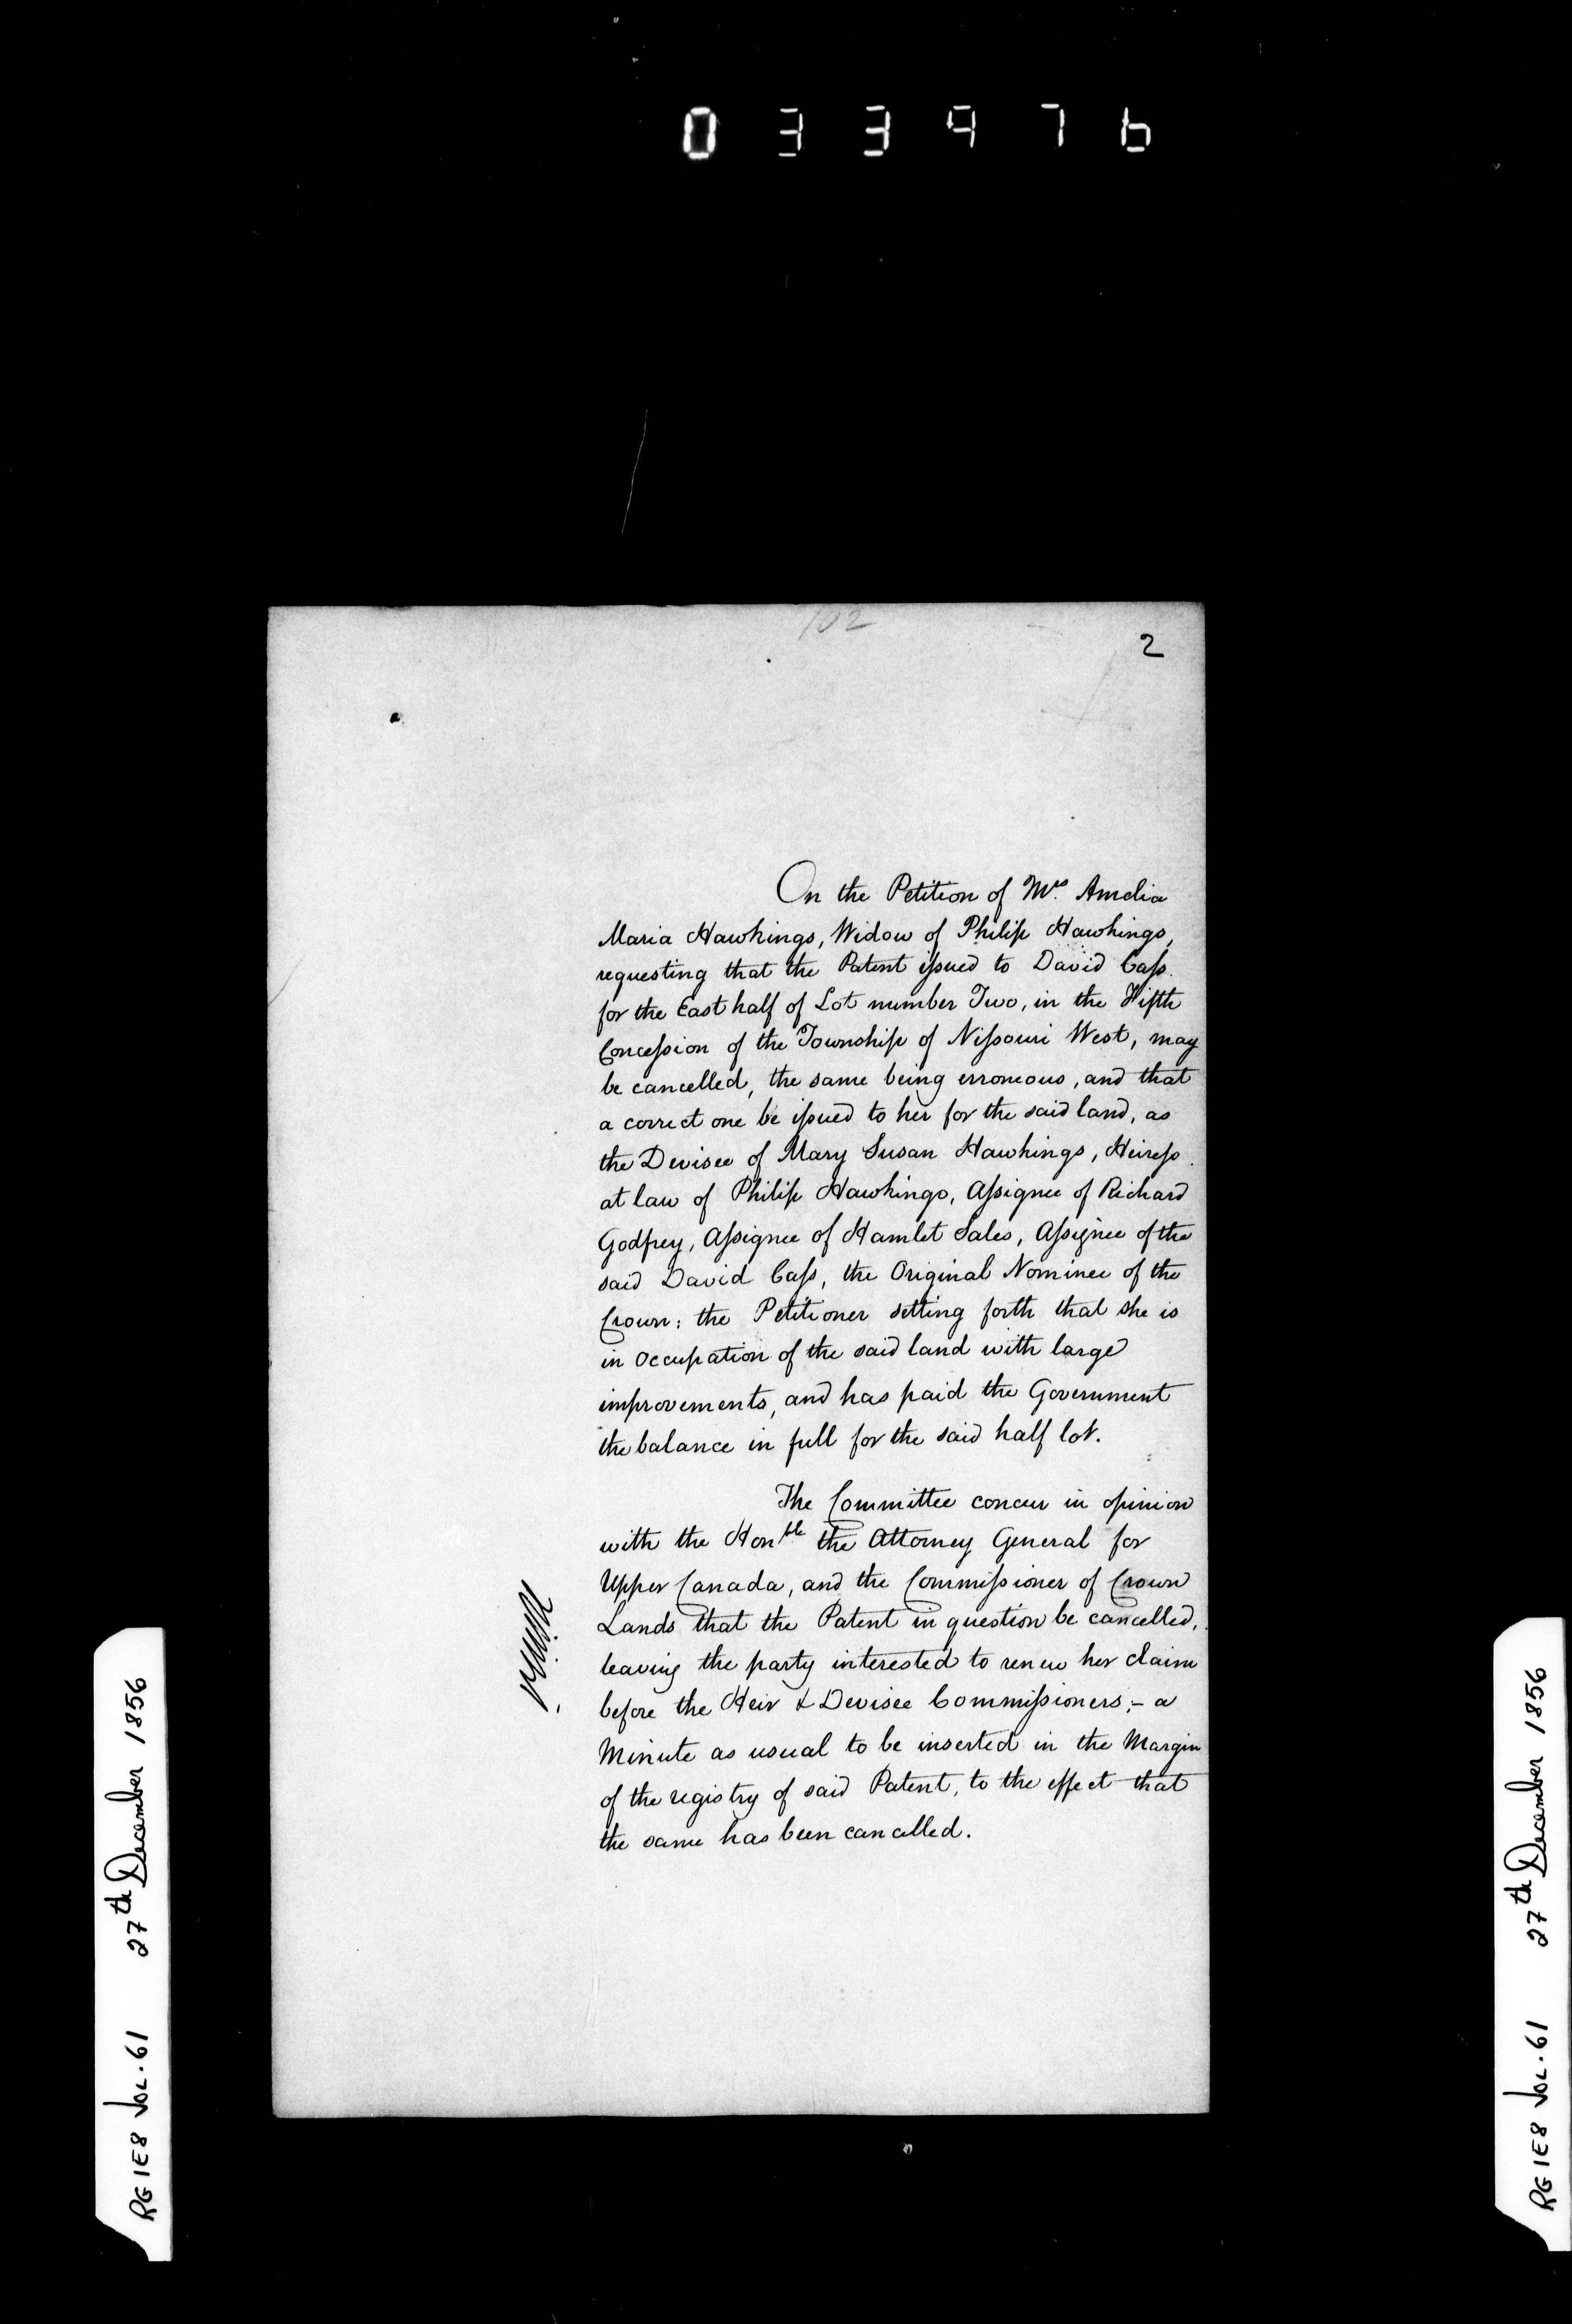 033976
102
2
On the Petition of Mrs. Amelia
Maria Hawkings, Widow of Philip Hawkings,
requesting that the Patent issued to David Cass
for the East half of Lot number Two, in the Fifth
Concession of the Township of Nissouri West, may
be cancelled, the same being erroneous, and that
a correct one be issued to her for the said land, as
the Devisee of Mary Susan Hawkings, Heiress
at law of Philip Hawkings, Assignee of Richard
Godfrey, Assignee of Hamlet Sales, Assignee of the
said David Cass, the Original Nominee of the
Crown: the Petitioner setting forth that she is
in occupation of the said land with large
improvements, and has paid the Government
the balance in full for the said half lot.
The Committee concur in opinion
with the Honble the Attorney General for
Upper Canada, and the Commissioner of Crown
Lands that the Patent in question be cancelled,
leaving the party interested to renew her claim
before the Heir & Devisee Commissioners;- a
Minute as usual to be inserted in the Margin
of the registry of said Patent, to the effect that
the same has been cancelled.
RG 1E8 VOL.61 27th December 1856
RG 1E8 VOL.61 27th December 1856